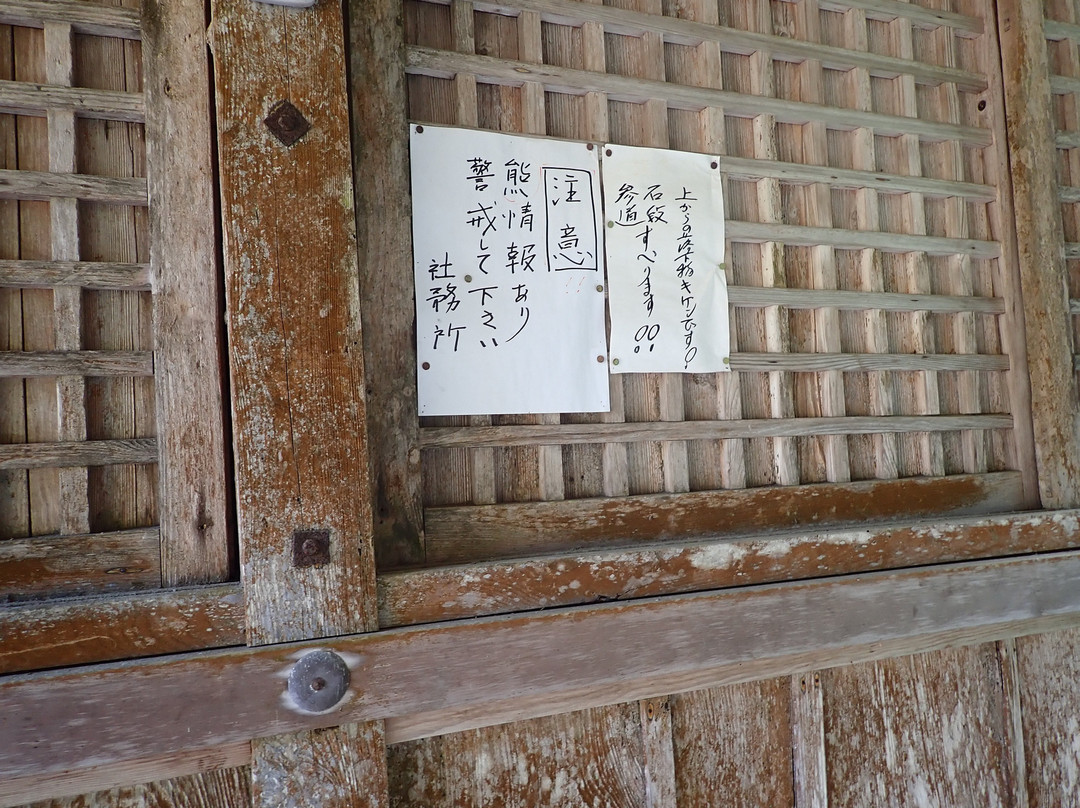 上からの落下物キケンです!
石段すべります!!
参道
注意
熊情報あり
警戒して下さい
社務所